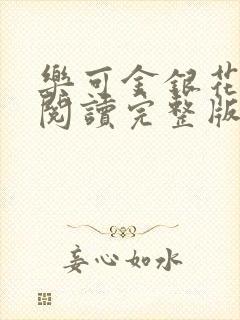 樂可金銀花
閱讀完整版
妄心如水